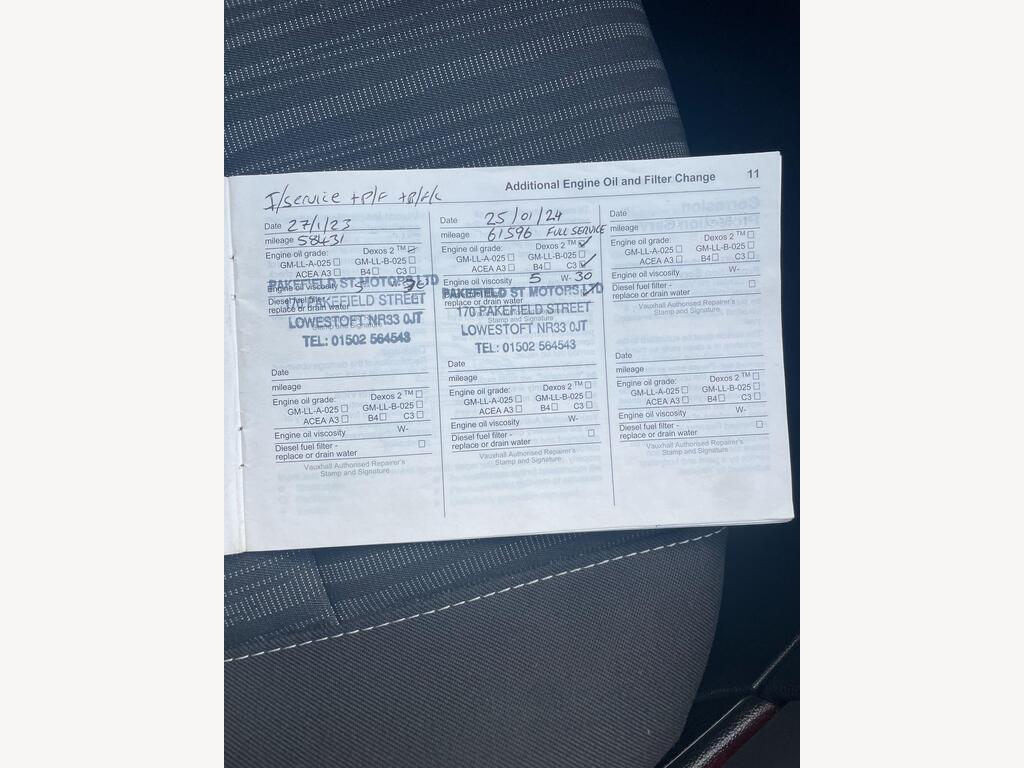 Additional Engine Oil and Filter Change 11
I/service +P/F
Date 27/1/23
mileage 58431
Engine oil grade: Dexos 2 ™
GM-LL-A-025 GM-LL-B-025
ACEA A3 B4 C3
Engine oil viscosity 5
Diesel fuel filter -
replace or drain water
PAKEFIELD ST MOTORS LTD
170 PAKEFIELD STREET
LOWESTOFT NR33 0JT
TEL: 01502 564543
Date
mileage
Engine oil grade: Dexos 2 ™
GM-LL-A-025 GM-LL-B-025
ACEA A3 B4 C3
Engine oil viscosity W-
Diesel fuel filter -
replace or drain water
Vauxhall Authorised Repairer's
Stamp and Signature
Date 25/01/24
mileage 61596 FULL SERVICE
Engine oil grade: Dexos 2 ™ ✓
GM-LL-A-025 GM-LL-B-025
ACEA A3 B4 C3 ✓
Engine oil viscosity 5 W- 30
replace or drain water ✓
PAKEFIELD ST MOTORS LTD
170 PAKEFIELD STREET
LOWESTOFT NR33 0JT
TEL: 01502 564543
Date
mileage
Engine oil grade: Dexos 2 ™
GM-LL-A-025 GM-LL-B-025
ACEA A3 B4 C3
Engine oil viscosity W-
Diesel fuel filter -
replace or drain water
Vauxhall Authorised Repairer's
Stamp and Signature
Date
mileage
Engine oil grade: Dexos 2 ™
GM-LL-A-025 GM-LL-B-025
ACEA A3 B4 C3
Engine oil viscosity W-
Diesel fuel filter -
replace or drain water
Vauxhall Authorised Repairer's
Stamp and Signature
Date
mileage
Engine oil grade: Dexos 2 ™
GM-LL-A-025 GM-LL-B-025
ACEA A3 B4 C3
Engine oil viscosity W-
Diesel fuel filter -
replace or drain water
Vauxhall Authorised Repairer's
Stamp and Signature